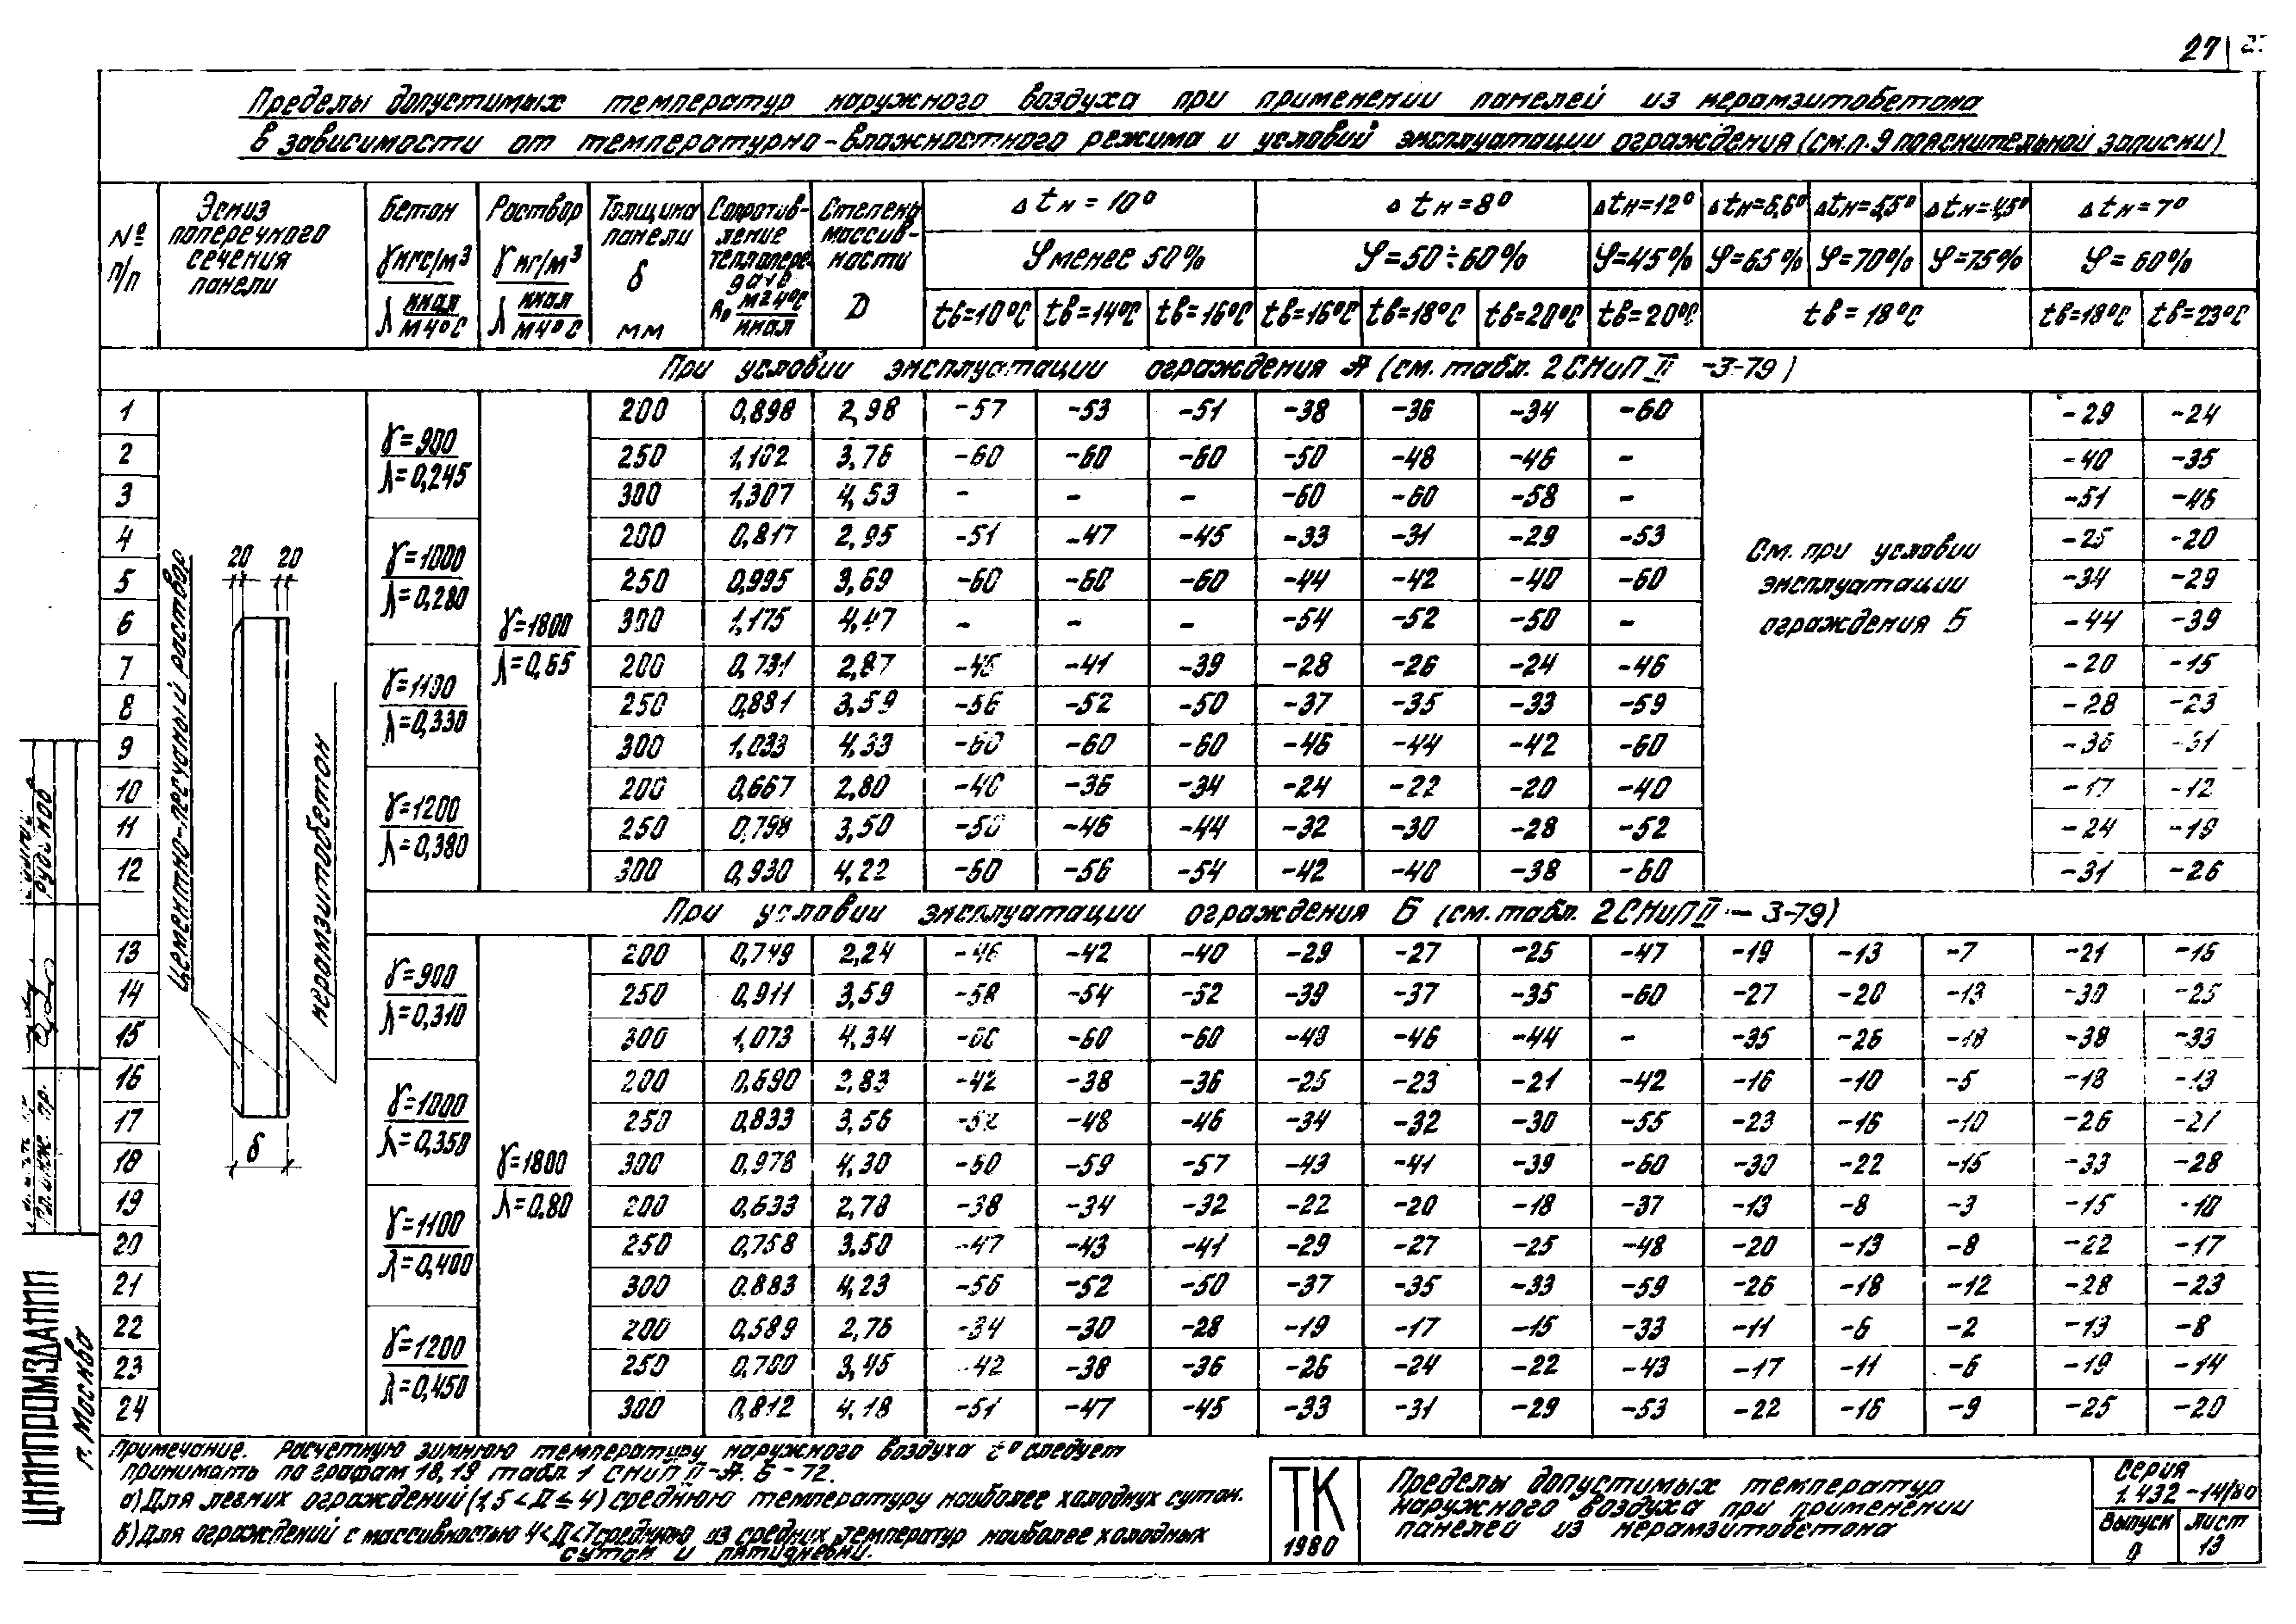 27
Пределы допустимых температур наружного воздуха при применении панелей из керамзитобетона
в зависимости от температурно-влажностного режима и условий эксплуатации ограждения (см.п.9 пояснительной записки)
№ п/п
Эскиз поперечного сечения панели
Бетон γ кгс/м³ λ ккал/м ч°С
Раствор γ кг/м³ λ ккал/м ч°С
Толщина панели δ мм
Сопротивление теплопередаче R₀ м2ч°С/ккал
Степень массивности D
Δtн=10° Δtн=8° Δtн=12° Δtн=6,6° Δtн=5,5° Δtн=4,5° Δtн=7°
φ менее 50% φ=50÷60% φ=45% φ=65% φ=70% φ=75% φ=60%
tв=10°С tв=14°С tв=16°С tв=16°С tв=18°С tв=20°С tв=20°С tв=18°С tв=18°С tв=23°С
При условии эксплуатации ограждения А (см. табл. 2 СНиП II-3-79)
Цементно-песчаный раствор
керамзитобетон
20 20
δ
γ=1800
λ=0,65
См. при условии
эксплуатации
ограждения Б
γ=900
λ=0,245
1 200 0,898 2,98 -57 -53 -51 -38 -36 -34 -60 -29 -24
2 250 1,102 3,76 -60 -60 -60 -50 -48 -46 - -40 -35
3 300 1,307 4,53 - - - -60 -60 -58 - -51 -46
γ=1000
λ=0,280
4 200 0,817 2,95 -51 -47 -45 -33 -31 -29 -53 -25 -20
5 250 0,995 3,69 -60 -60 -60 -44 -42 -40 -60 -34 -29
6 300 1,175 4,47 - - - -54 -52 -50 - -44 -39
γ=1100
λ=0,330
7 200 0,731 2,87 -45 -41 -39 -28 -26 -24 -46 -20 -15
8 250 0,881 3,59 -56 -52 -50 -37 -35 -33 -59 -28 -23
9 300 1,033 4,33 -60 -60 -60 -46 -44 -42 -60 -36 -31
γ=1200
λ=0,380
10 200 0,667 2,80 -40 -36 -34 -24 -22 -20 -40 -17 -12
11 250 0,798 3,50 -50 -46 -44 -32 -30 -28 -52 -24 -19
12 300 0,930 4,22 -60 -56 -54 -42 -40 -38 -60 -31 -26
При условии эксплуатации ограждения Б (см. табл. 2 СНиП II-3-79)
γ=1800
λ=0,80
γ=900
λ=0,310
13 200 0,749 2,24 -46 -42 -40 -29 -27 -25 -47 -19 -13 -7 -21 -16
14 250 0,911 3,59 -58 -54 -52 -39 -37 -35 -60 -27 -20 -13 -30 -25
15 300 1,073 4,34 -60 -60 -60 -48 -46 -44 - -35 -26 -18 -38 -33
γ=1000
λ=0,350
16 200 0,690 2,83 -42 -38 -36 -25 -23 -21 -42 -16 -10 -5 -18 -13
17 250 0,833 3,56 -52 -48 -46 -34 -32 -30 -55 -23 -16 -10 -26 -21
18 300 0,976 4,30 -60 -59 -57 -43 -41 -39 -60 -30 -22 -15 -33 -28
γ=1100
λ=0,400
19 200 0,633 2,78 -38 -34 -32 -22 -20 -18 -37 -13 -8 -3 -15 -10
20 250 0,758 3,50 -47 -43 -41 -29 -27 -25 -48 -20 -13 -8 -22 -17
21 300 0,883 4,23 -56 -52 -50 -37 -35 -33 -59 -26 -18 -12 -28 -23
γ=1200
λ=0,450
22 200 0,589 2,76 -34 -30 -28 -19 -17 -15 -33 -11 -6 -2 -13 -8
23 250 0,700 3,45 -42 -38 -36 -26 -24 -22 -43 -17 -11 -6 -19 -14
24 300 0,812 4,18 -51 -47 -45 -33 -31 -29 -53 -22 -16 -9 -25 -20
Примечание. Расчетную зимнюю температуру наружного воздуха t° следует
принимать по графам 18,19 табл. 1 СНиП II-А.6-72.
а) Для легких ограждений (1,5<Д≤4) среднюю температуру наиболее холодных суток.
б) Для ограждений с массивностью 4<Д<7 среднюю из средних температур наиболее холодных
суток и пятидневки.
ТК
1980
Пределы допустимых температур
наружного воздуха при применении
панелей из керамзитобетона
Серия
1.432-14/80
Выпуск 0
Лист 13
ЦНИИПРОМЗДАНИЙ
г. Москва
Рубинов